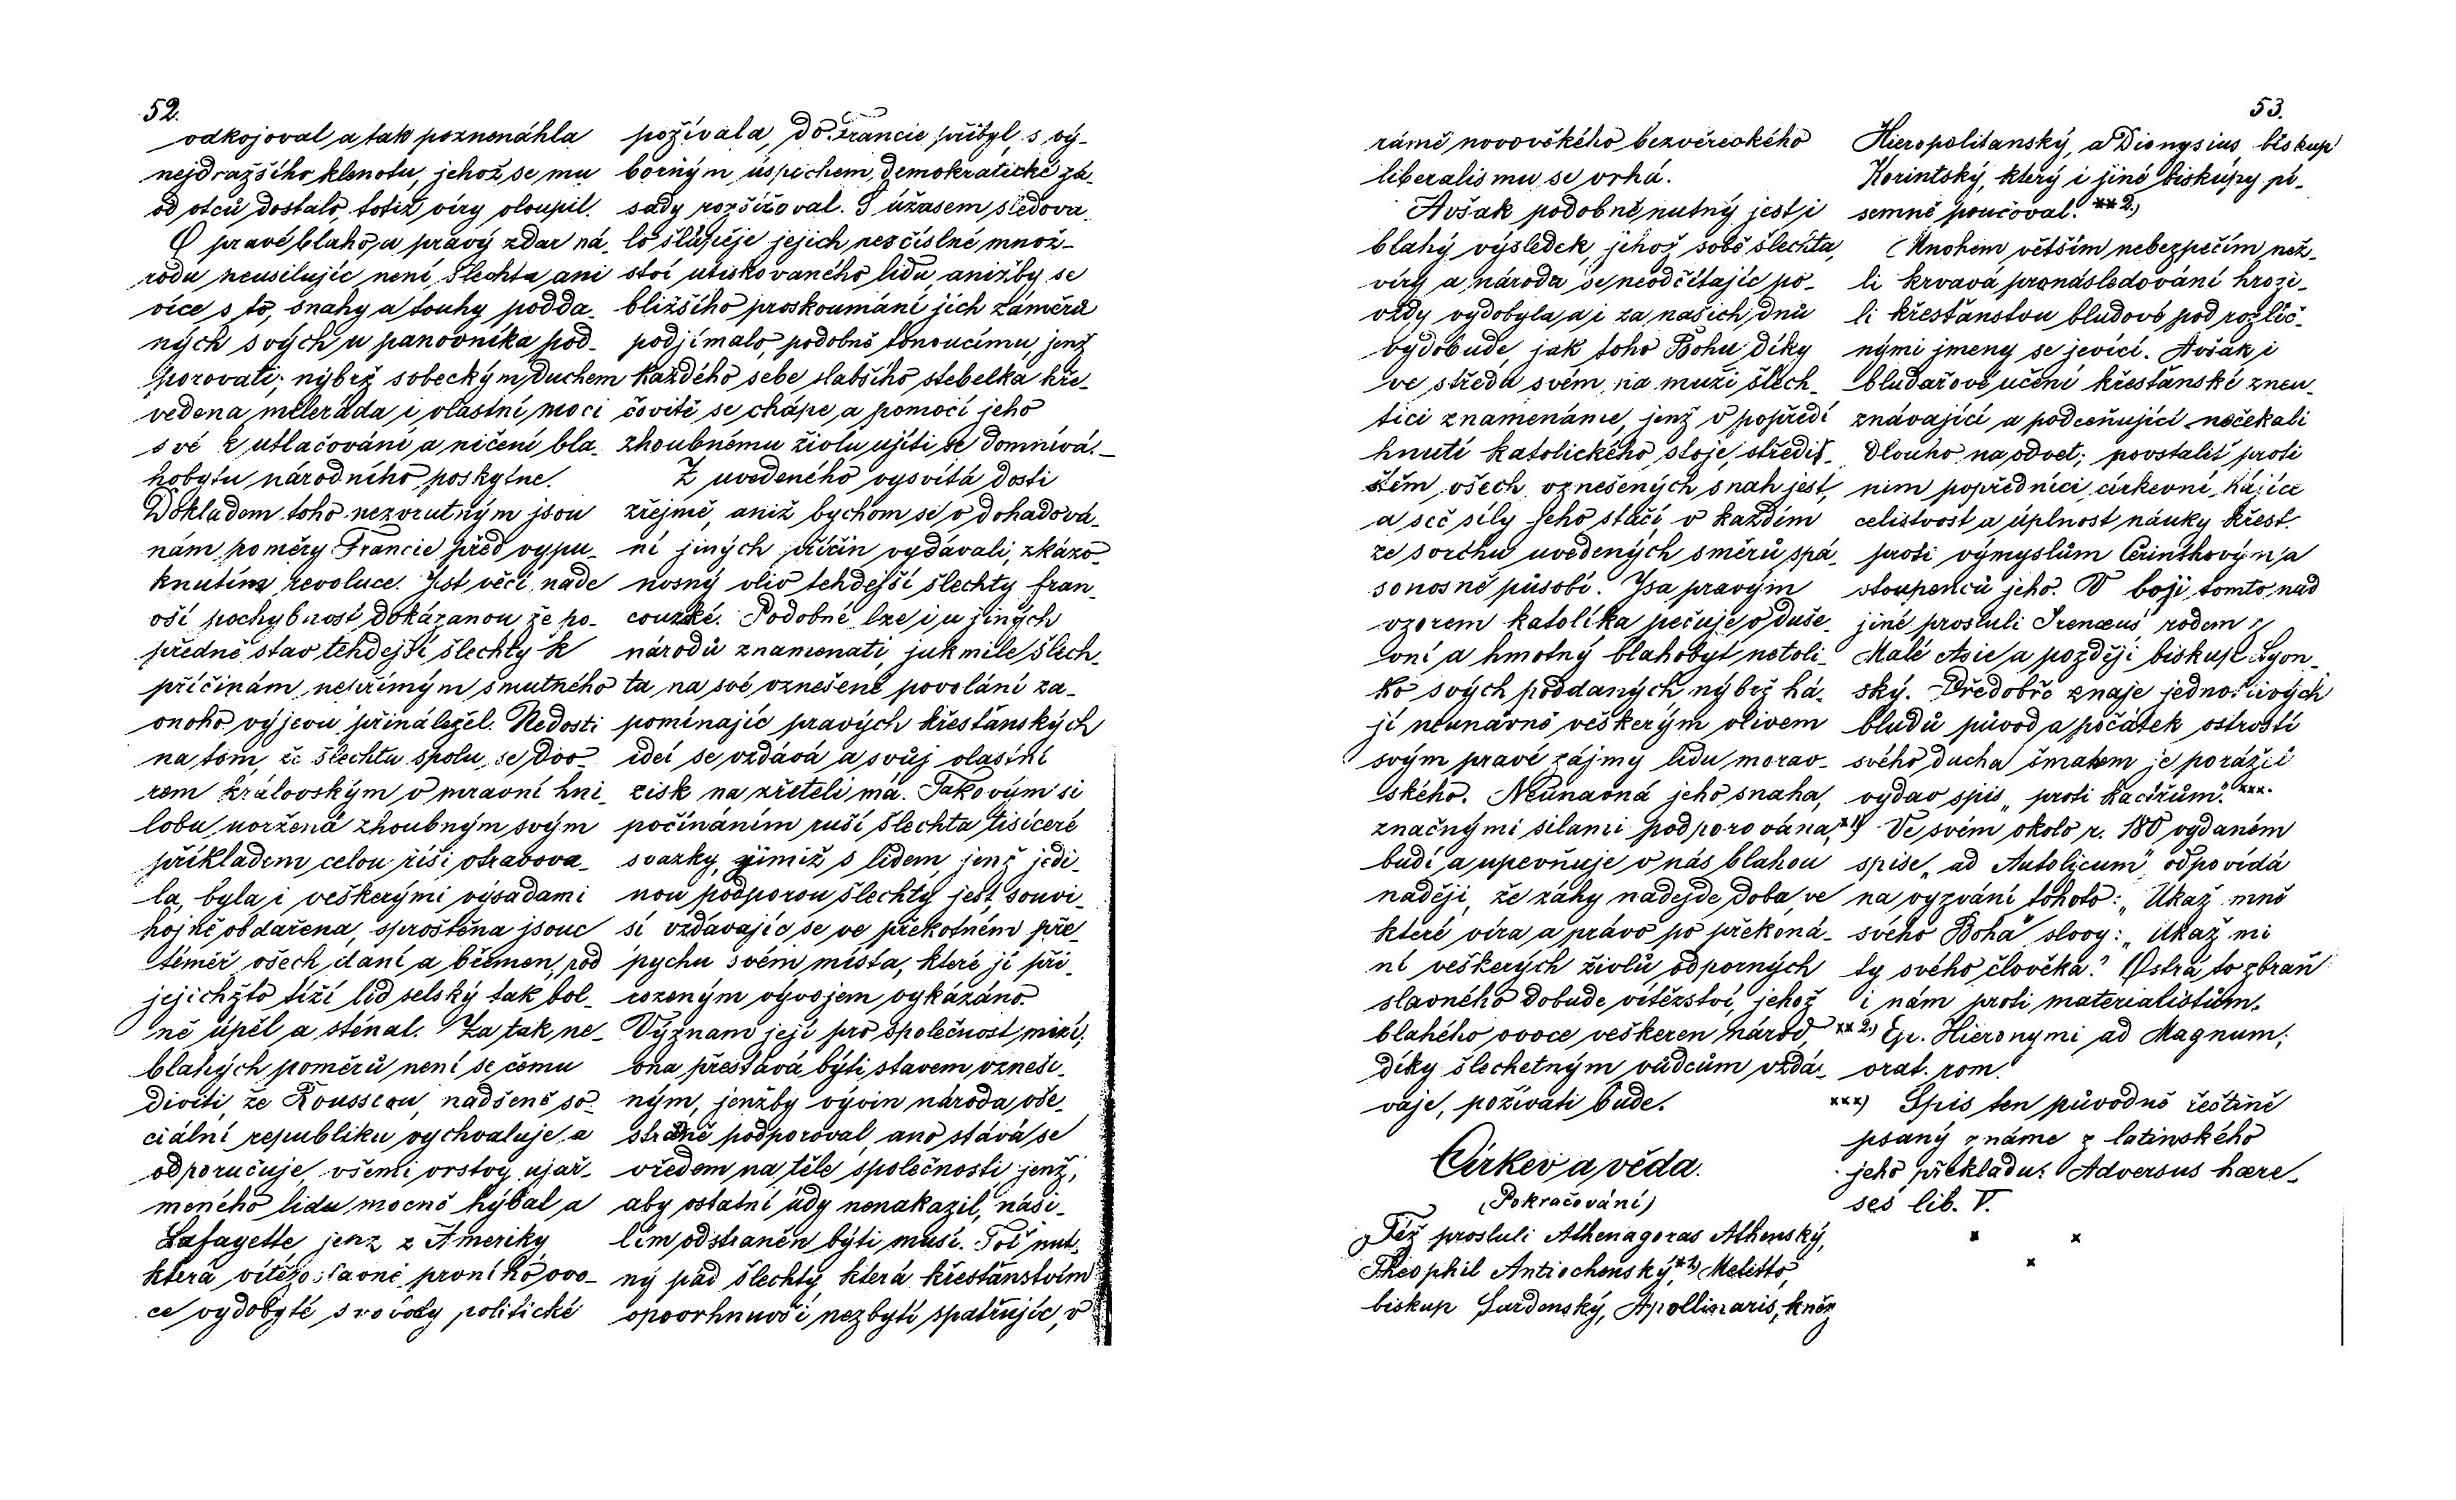 52.
odkojoval a tak poznenáhla
nejdražšího klenotu, jehož se mu
od otců dostalo, totiž víry oloupil.
O pravé blaho, a pravý zdar ná-
rodu neusilujíc není šlechta ani
více s to, snahy a touhy podda-
ných svých u panovníka pod-
porovati; nýbrž sobeckým duchem
vedena milerádа i vlastní moci
své k utlačování a ničení bla-
hobytu národního poskytne.
Dokladem toho nezvrutným jsou
nám poměry Francie před vypu-
knutím revoluce. Jest věcí nade
vší pochybnost dokázanou že po-
předně stav tehdejší šlechty k
příčinám nepřímým smutného
onoho výjevu přináležel. Nedosti
na tom, že šlechta spolu se dvo-
rem královským v mravní hni-
lobu uvržená zhoubným svým
příkladem celou říši otravova-
la, byla i veškerými výsadami
hojně obdařena, sproštěna jsouc
téměř všech daní a břemen, pod
jejichžto tíží lid selský tak bol-
ně úpěl a sténal. Za tak ne-
blahých poměrů není se čemu
diviti, že Rousseau, nadšeně so-
ciální republiku vychvaluje a
odporučuje, všemi vrstvy ujař-
meného lidu mocně hýbal a
Lafayette, jenž z Ameriky,
která vítězoslavně první ho ovo-
ce vydobyté svobody politické
požívala, do Francie přibyl s vý-
borným úspěchem, demokratické zá-
sady rozšiřoval. S úžasem sledova-
lo šlépěje jejich nesčíslné množ-
ství utiskovaného lidu, anižby se
bližšího proskoumání jich záměrů
podjímalo, podobně tonoucímu, jenž
každého sebe slabšího stebelka kře-
čovitě se chápe a pomocí jeho
zhoubnému živlu ujíti se domnívá.
Z uvedeného vysvítá dosti
zřejmě, aniž bychom se v dohadová-
ní jiných příčin vydávali, zkázo-
nosný vliv tehdejší šlechty fran-
couzké. Podobně lze i u jiných
národů znamenati, jakmile šlech-
ta, na své vznešené povolání za-
pomínajíc pravých křesťanských
ideí se vzdává a svůj vlastní
zisk na zřeteli má. Takovým si
počínáním ruší šlechta tisíceré
svazky, jimiž s lidem, jenž jedi-
nou podporou šlechty jest souvi-
sí vzdávajíc se ve překotném pře-
pychu svém místa, které jí při-
rozeným vývojem vykázáno.
Význam její pro společnost mizí;
ona přestává býti stavem vzneše-
ným, jenžby vývin národa vše-
straně podporoval, ano stává se
vředem na těle společnosti, jenž,
aby ostatní údy nenakazil, nási-
lím odstraněn býti musí. Toť nut-
ný pád šlechty, která křesťanstvím
opovrhnuvši nezbytí spatřujíc, v
53.
rámě novověkého bezvěreckého
liberalismu se vrhá.
Avšak podobně nutný jest i
blahý výsledek, jehož sobě šlechta,
víry a národa se neodčítajíc po-
vždy vydobyla, a i za našich dnů
vydobude, jak toho Bohu díky
ve středu svém, na muži šlech-
tici znamenáme, jenž v popředí
hnutí katolického stoje, středi-
štěm všech vznešených snah jest,
a seč síly jeho stačí, v každém
ze svrchu uvedených směrů spá-
sonosně působí. Jsa pravým
vzorem katolíka pečuje o duše-
vní a hmotný blahobyt netoli-
ko svých poddaných nýbrž há-
jí neunavně veškerým vlivem
svým pravé zájmy lidu morav-
ského. Neúnavná jeho snaha,
značnými silami podporována,
budí a upevňuje v nás blahou
naději, že záhy nadejde doba, ve
které víra a právo po překoná-
ní veškerých živlů odporných
slavného dobude vítězství, jehož
blahého ovoce veškeren národ,
díky šlechetným vůdcům vzdá-
vaje, požívati bude.
Církev a věda.
(Pokračování)
Též prosluli Athenagoras Athenský,
Theophil Antiochenský,*1) Melitto,
biskup Sardenský, Apollinaris, kněz
Hieropolitanský, a Dionysius biskup
Korintský, který i jiné biskupy pí-
semně poučoval. **2.)
Mnohem větším nebezpečím než-
li krvavá pronásledování hrozi-
li křesťanstvu bludové pod rozlič-
nými jmeny se jevící. Avšak i
bludařové učení křesťanské zneu-
znávající a podceňující nečekali
dlouho na odvet; povstaliť proti
nim popředníci církevní, hájíce
celistvost a úplnost náuky křest.
proti výmyslům Cerinthovým a
stoupenců jeho. V boji tomto nad
jiné prosluli Irenæus rodem z
Malé Asie a později biskup Lyon-
ský. Předobře znaje jednotlivých
bludů původ a počátek ostrostí
svého ducha šmahem je porážel
vydav spis „proti kacířům". xxx.
*1) Ve svém okolo r. 180 vydaném
spise „ad Autolicum" odpovídá
na vyzvání tohoto: „Ukaž mně
svého Boha" slovy: „Ukaž mi
ty svého člověka." Ostrá to zbraň
i nám proti materialistům.
xx 2.) Ep. Hieronymi ad Magnum;
orat. rom.
xxx) Spis ten původně řečtině
psaný známe z latinského
jeho překladu: Adversus hære-
ses lib. V.
x x
x